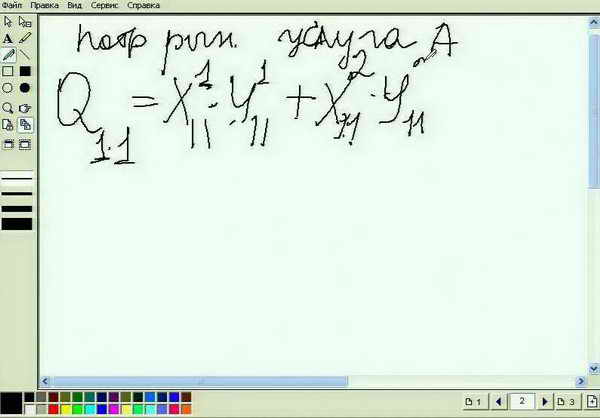 Файл Правка Вид Сервис Справка
потр рын. услуга А
Q₁.₁ = X¹₁₁ · У¹₁₁ + X²₁₁ · У²₁₁
1 2 3